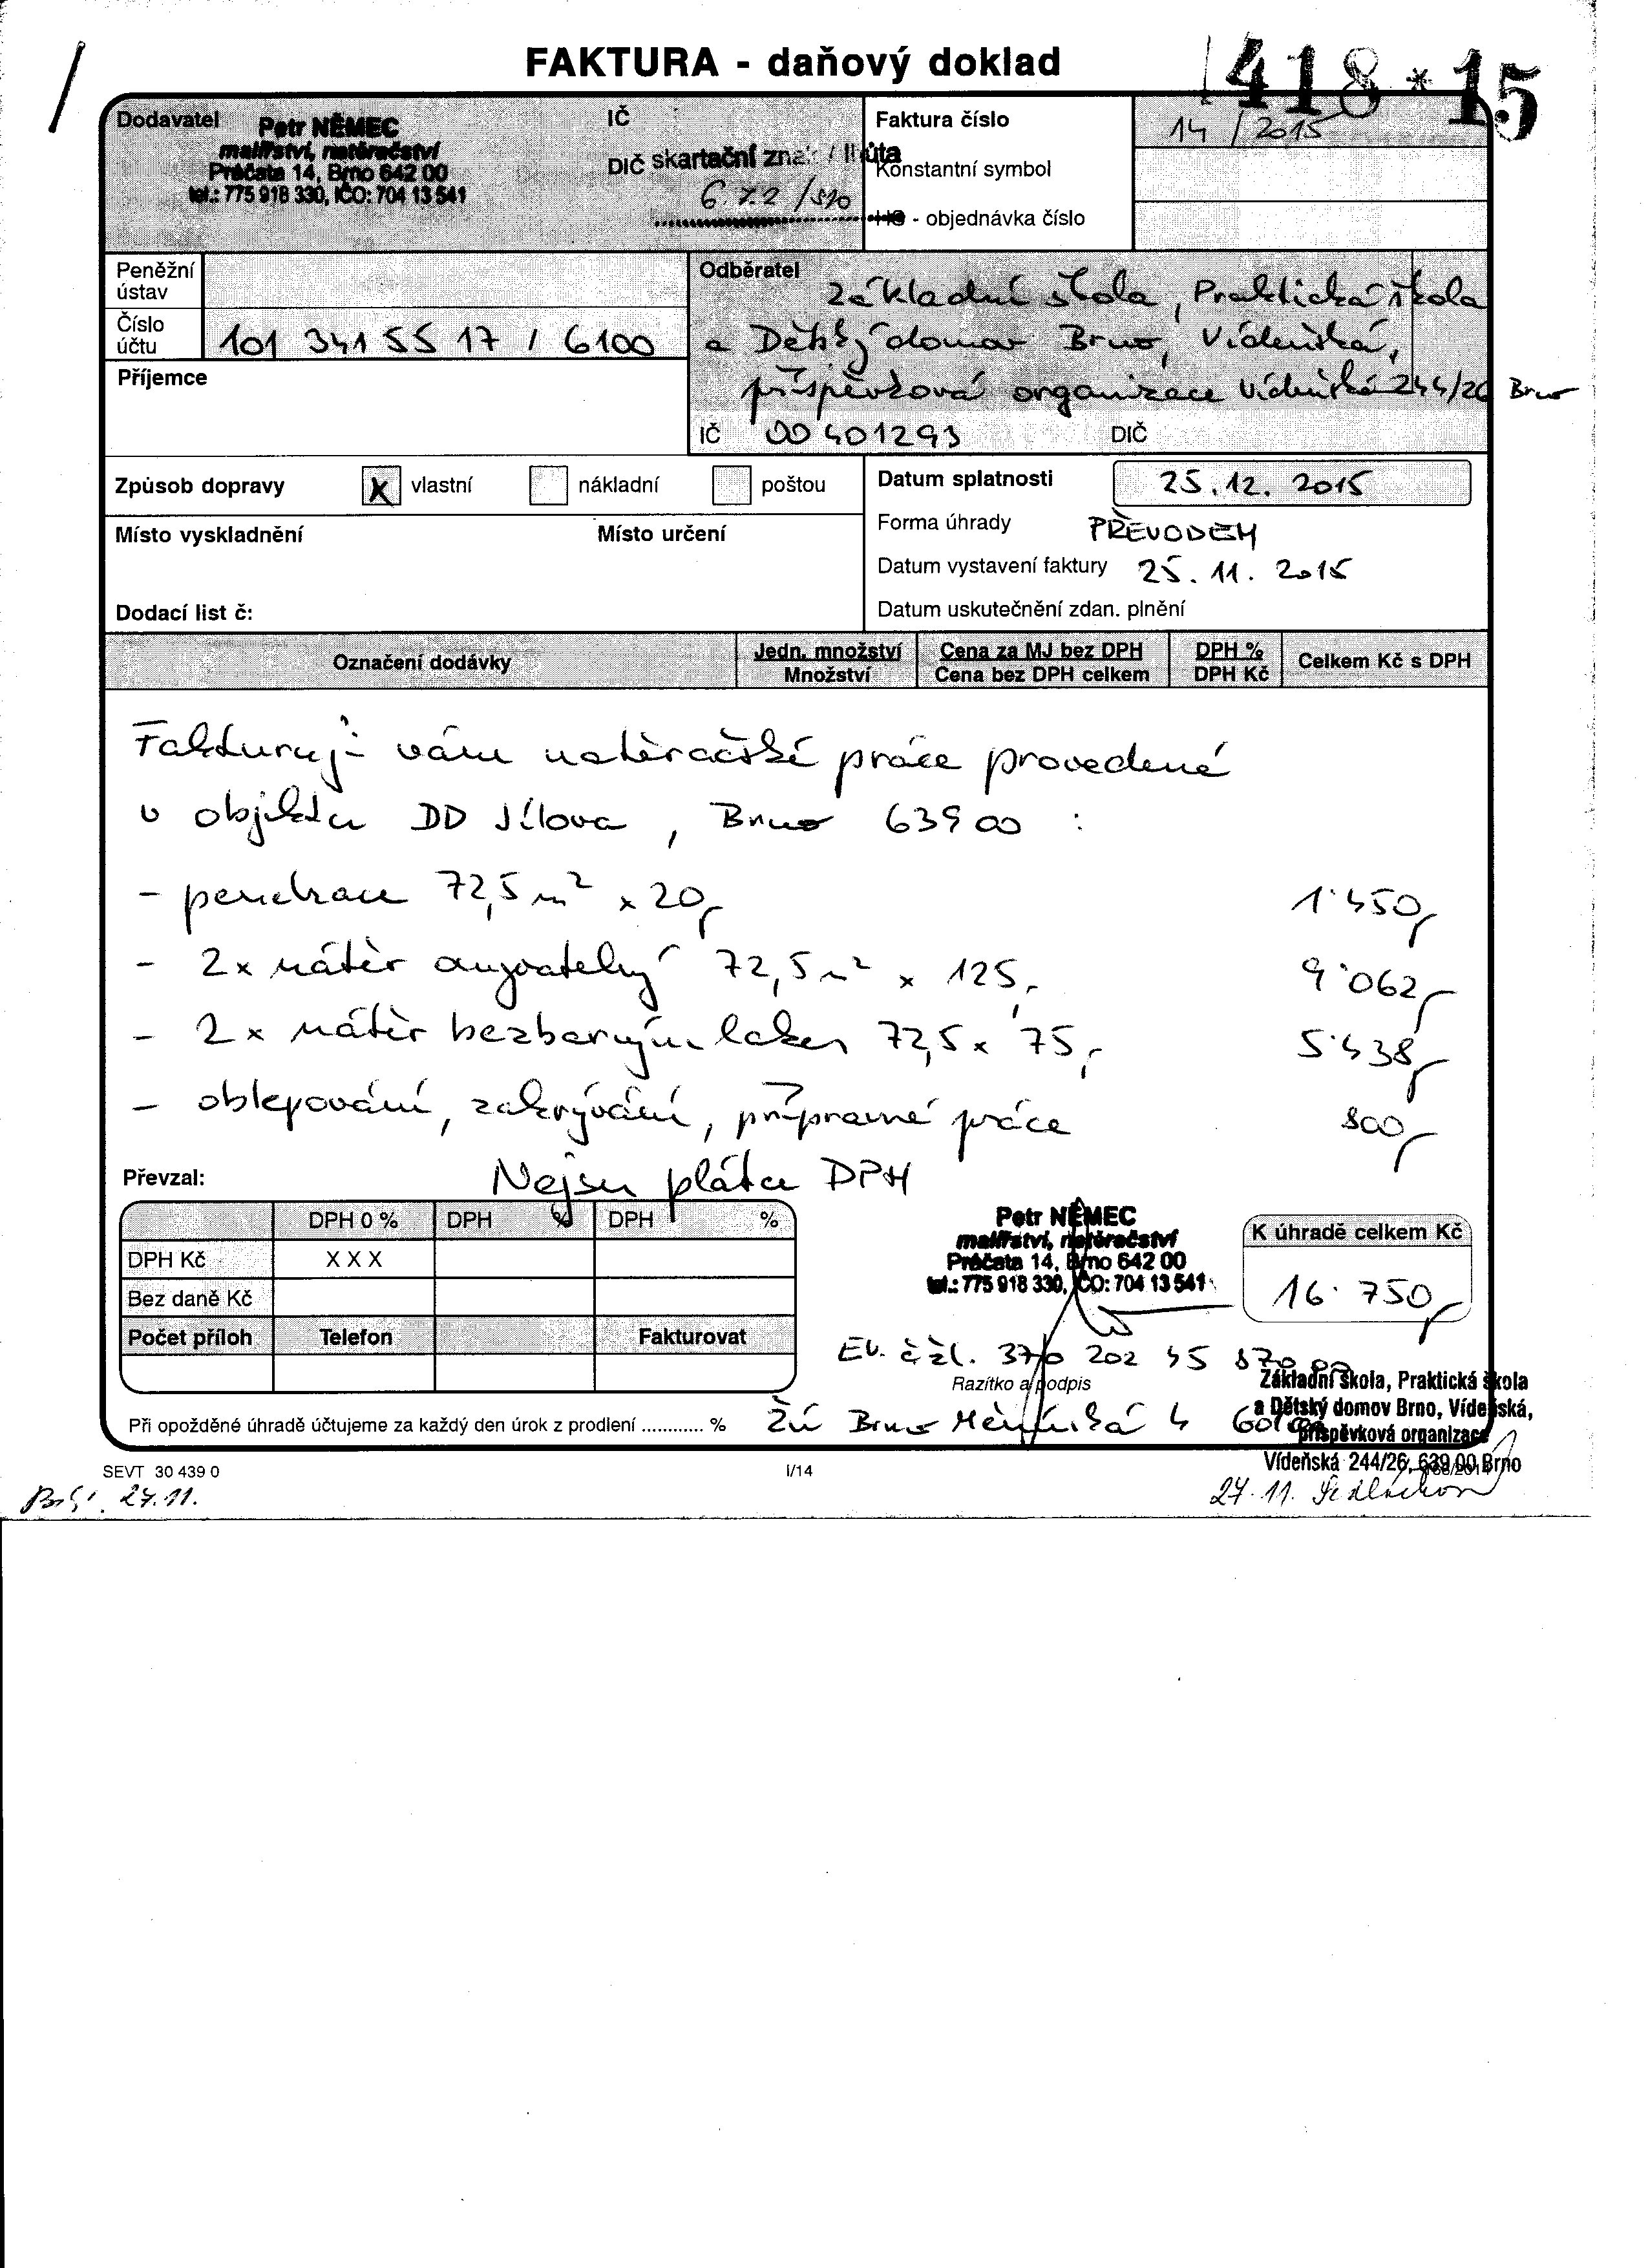 FAKTURA - daňový doklad
418 * 15
Dodavatel
Petr NĚMEC
malířství, natěračství
Préčata 14, Brno 642 00
tel.: 775 918 330, IČO: 704 13 541
IČ
DIČ
skartační znak / lhůta
Faktura číslo
14 / 2015
Konstantní symbol
- objednávka číslo
Peněžní ústav
Číslo účtu
101 341 55 17 / 6100
Příjemce
Odběratel
Základní škola, Praktická škola
a Dětský domov Brno, Vídeňská,
příspěvková organizace Vídeňská 244/26 Brno
IČ 00401293 DIČ
Způsob dopravy X vlastní nákladní poštou
Místo vyskladnění Místo určení
Dodací list č:
Datum splatnosti 25.12. 2015
Forma úhrady PŘEVODEM
Datum vystavení faktury 25. 11. 2015
Datum uskutečnění zdan. plnění
Označení dodávky
Jedn. množství
Množství
Cena za MJ bez DPH
Cena bez DPH celkem
DPH %
DPH Kč
Celkem Kč s DPH
Fakturuji vám natěračské práce provedené
v objektu DD Jílova, Brno 63900 :
- penetrace 72,5 m² x 20,- 1'450,-
- 2x nátěr omyvatelný 72,5 m² x 125,- 9'062,-
- 2x nátěr bezbarvým lakem 72,5 x 75,- 5'438,-
- oblepování, zakrývání, přípravné práce 800,-
Převzal:
Nejsem plátce DPH
DPH 0 % DPH % DPH %
DPH Kč X X X
Bez daně Kč
Počet příloh Telefon Fakturovat
Petr NĚMEC
malířství, natěračství
Préčata 14, Brno 642 00
tel.: 775 918 330, IČO: 704 13 541
K úhradě celkem Kč
16 750,-
Ev. č žl. 370 202 45 870 00
Razítko a podpis
Při opožděné úhradě účtujeme za každý den úrok z prodlení ............ %
ŽÚ Brno Měnínská 4
Základní škola, Praktická škola
a Dětský domov Brno, Vídeňská,
příspěvková organizace
Vídeňská 244/26, 639 00 Brno
SEVT 30 439 0
I/14
27.11.
27.11. Sedláčková